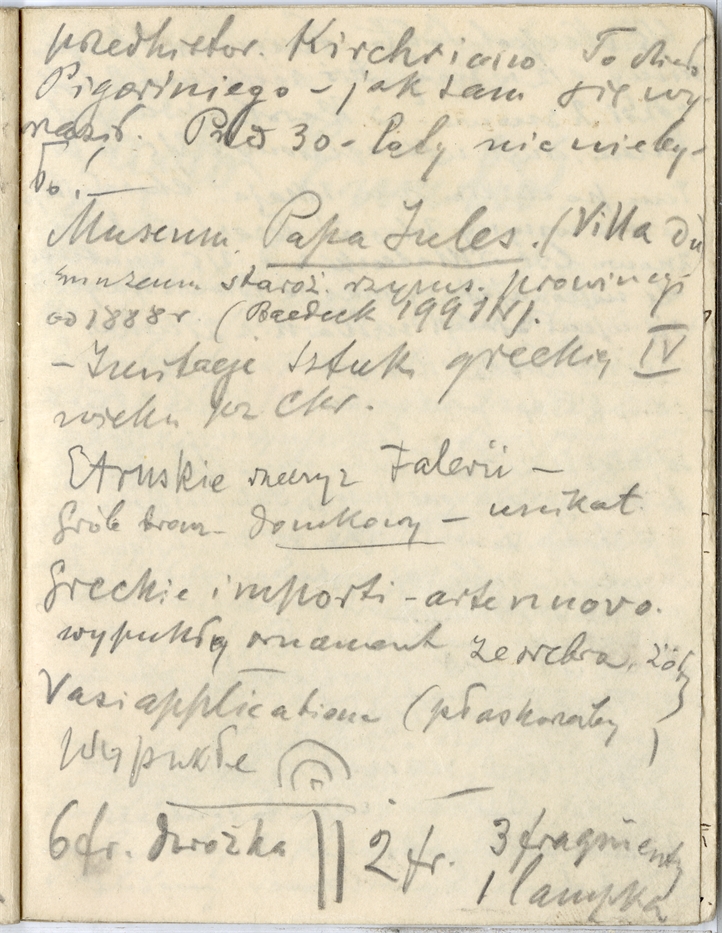 przedhistor. Kirchriano To dzieło
Pigoriniego – jak sam się wy-
raził. Przed 30-laty nic nie by-
ło! —
Museum Papa Jules. (Villa di
muzeum staroż. rzyms. prowincyi
od 1888 r. (Baedeck 1991 IV).
– Imitacje sztuk greckiej IV
wieku prz Chr.
Etruskie rzeczy z Falerii –
Grób bronz- domkowy – unikat.
Greckie importi – arte nuovo.
wypukły ornament ze srebra, żółty
Vasi applicatione (płaskorzeźby
Wypukłe
6 fr. dorożka || 2 fr. 3 fragmenty
1 lampka